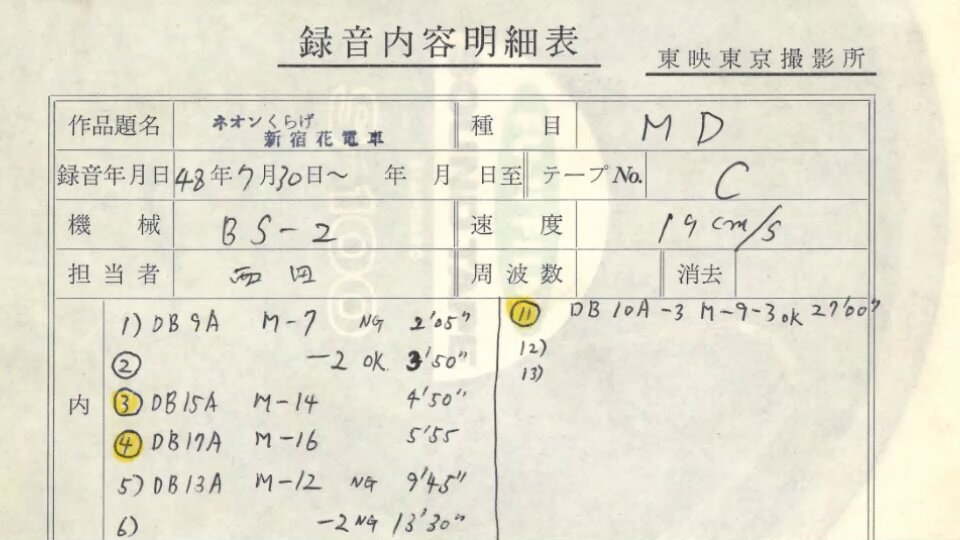 録音内容明細表
東映東京撮影所
作品題名 ネオンくらげ 新宿花電車 種目 MD
録音年月日 48年7月30日～ 年 月 日至 テープNo. C
機械 BS-2 速度 19cm/s
担当者 周波数 消去
内
1) DB9A M-7 NG 2'05"
② -2 OK 3'50"
③ DB15A M-14 4'50"
④ DB17A M-16 5'55
5) DB13A M-12 NG 9'45"
6) -2 NG 13'30"
⑪ DB10A-3 M-9-3 OK 27'00"
12)
13)